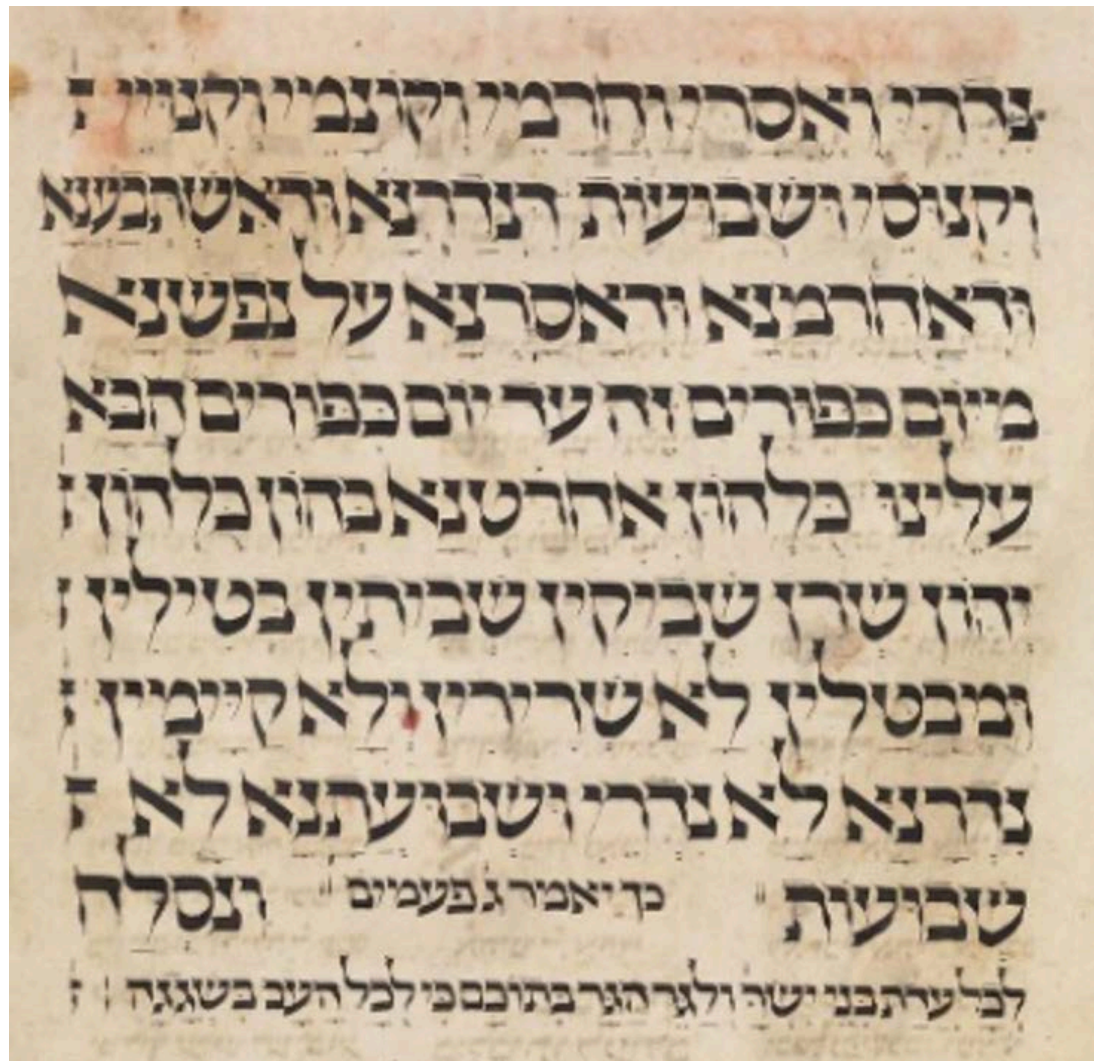 נדרי ואסרי וחרמי וקונמי וקניי
וקנוסי ושבועות דנדרנא ודאשתבענא
ודאחרמנא ודאסרנא על נפשנא
מיום כפורים זה עד יום כפורים הבא
עלינו כלהון אחרטנא בהון כלהון
יהון שרן שביקין שביתין בטילין
ומבטלין לא שרירין ולא קיימין
נדרנא לא נדרי ושבועתנא לא
שבועות כך יאמר ג פעמים ונסלח
לכל עדת בני ישר ולגר הגר בתוכם כי לכל העב בשגגה